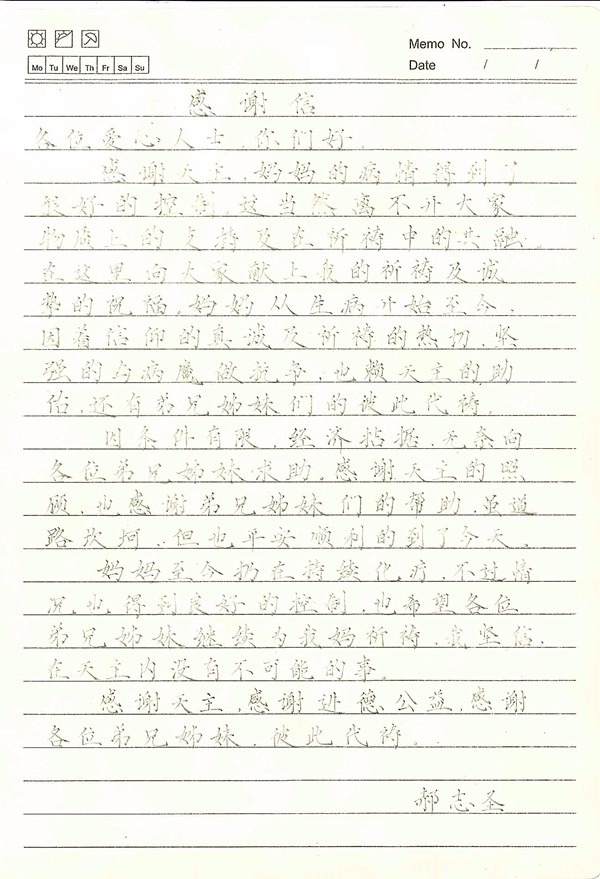 Memo No.
Mo Tu We Th Fr Sa Su
Date / /
感谢信
各位爱心人士，你们好，
感谢天主，妈妈的病情得到了
很好的控制，这当然离不开大家
物质上的支持及在祈祷中的共融。
在这里向大家献上我的祈祷及诚
挚的祝福，妈妈从生病开始至今，
因着信仰的真诚及祈祷的热切，坚
强的与病魔做抗争，也赖天主的助
佑，还有弟兄姊妹们的彼此代祷。
因条件有限，经济拮据，无奈向
各位弟兄姊妹求助。感谢天主的照
顾，也感谢弟兄姊妹们的帮助，虽道
路坎坷，但也平安顺利的到了今天。
妈妈至今仍在持续化疗，不过情
况也得到良好的控制，也希望各位
弟兄姊妹继续为我妈祈祷，我坚信，
在天主内没有不可能的事。
感谢天主，感谢进德公益，感谢
各位弟兄姊妹，彼此代祷。
郝志圣